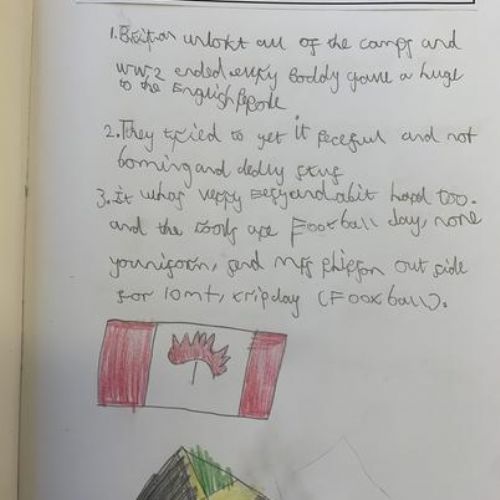 1. Britan unlokt all of the camps and
ww2 ended evrry boddy gave a huge
to the English Pepole
2. They tried to get it peceful and not
boming and dedly stuf
3. It whas verry easy and abit hard too.
and the rools are Football day, none
youniform, send mrs out side
for 10 mt, day (Football).